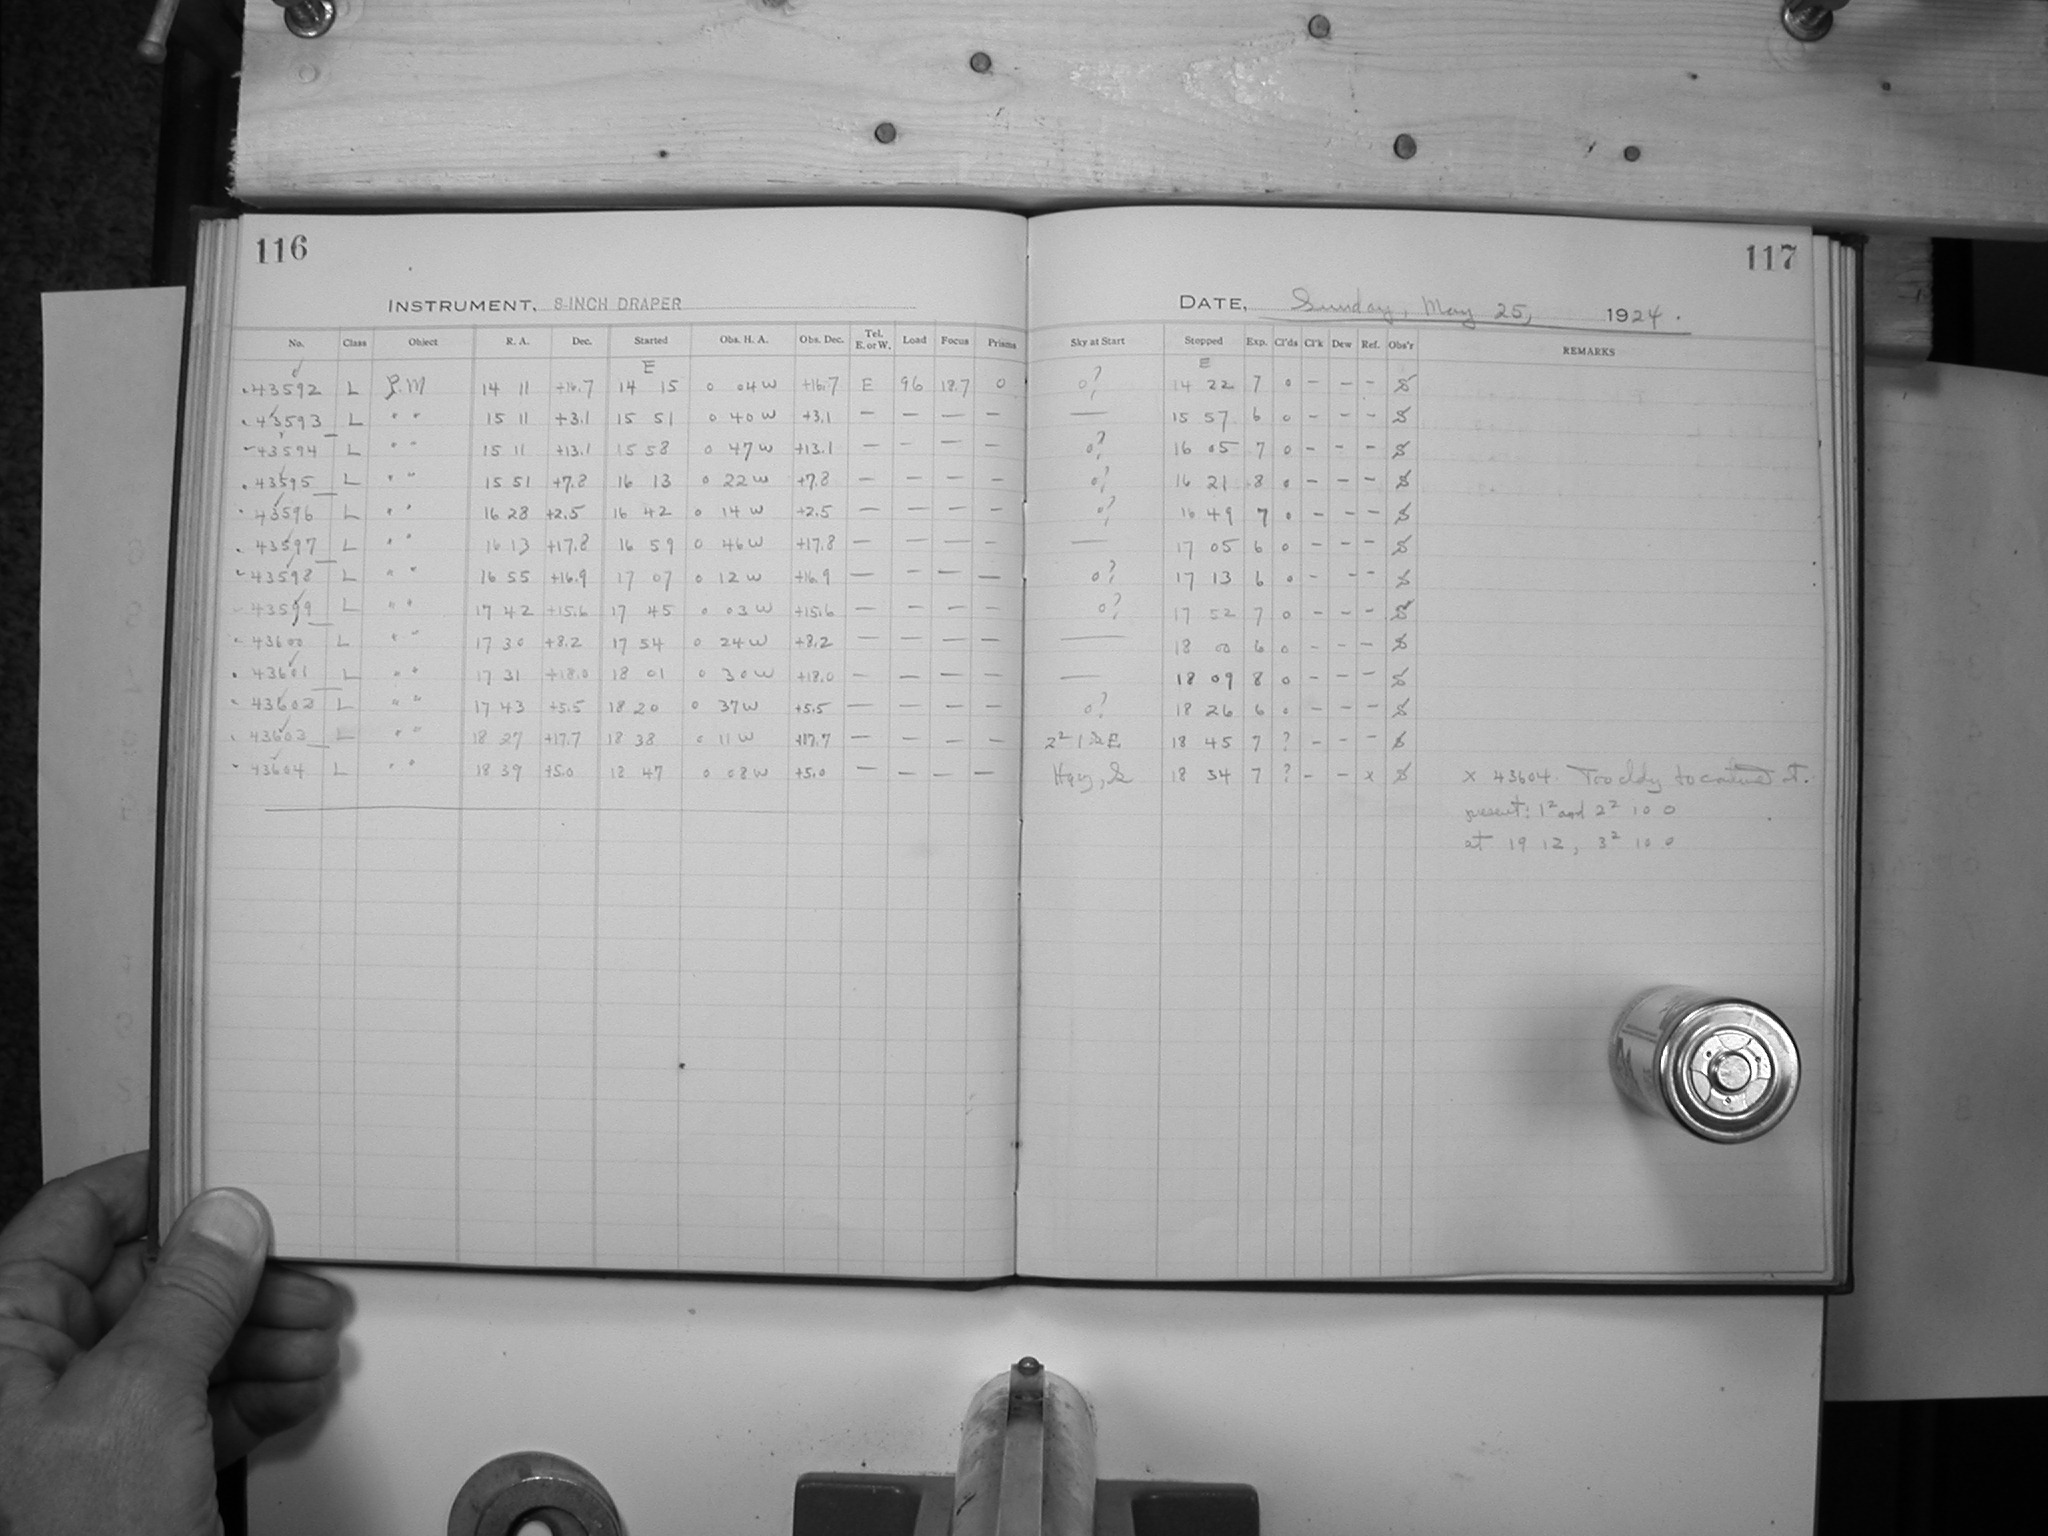 116
INSTRUMENT, 8-INCH DRAPER
No. Class Object R. A. Dec. Started Obs. H. A. Obs. Dec. Tel. E. or W. Load Focus Prisms
E
43592 L J.M 14 11 +16.7 14 15 0 04 W +16.7 E 96 18.7 0
43593 L " " 15 11 +3.1 15 51 0 40 W +3.1 — — — —
43594 L " " 15 11 +13.1 15 58 0 47 W +13.1 — — — —
43595 L " " 15 51 +7.8 16 13 0 22 W +7.8 — — — —
43596 L " " 16 28 +2.5 16 42 0 14 W +2.5 — — — —
43597 L " " 16 13 +17.8 16 59 0 46 W +17.8 — — — —
43598 L " " 16 55 +16.9 17 07 0 12 W +16.9 — — — —
43599 L " " 17 42 +15.6 17 45 0 03 W +15.6 — — — —
43600 L " " 17 30 +8.2 17 54 0 24 W +8.2 — — — —
43601 L " " 17 31 +18.0 18 01 0 30 W +18.0 — — — —
43602 L " " 17 43 +5.5 18 20 0 37 W +5.5 — — — —
43603 L " " 18 27 +17.7 18 38 0 11 W +17.7 — — — —
43604 L " " 18 39 +5.0 18 47 0 08 W +5.0 — — — —
117
DATE, Sunday, May 25, 1924.
Sky at Start Stopped Exp. Cl'ds Cl'k Dew Ref. Obs'r REMARKS
E
0? 14 22 7 0 – – – S
— 15 57 6 0 – – – S
0? 16 05 7 0 – – – S
0? 16 21 8 0 – – – S
0? 16 49 7 0 – – – S
— 17 05 6 0 – – – S
0? 17 13 6 0 – – – S
0? 17 52 7 0 – – – S
— 18 00 6 0 – – – S
— 18 09 8 0 – – – S
0? 18 26 6 0 – – – S
2² 1 S E 18 45 7 ? – – – S
Hazy, S 18 54 7 ? – – x S x 43604. Too cldy to continue at
present: 1² and 2² 10 0
at 19 12, 3² 10 0